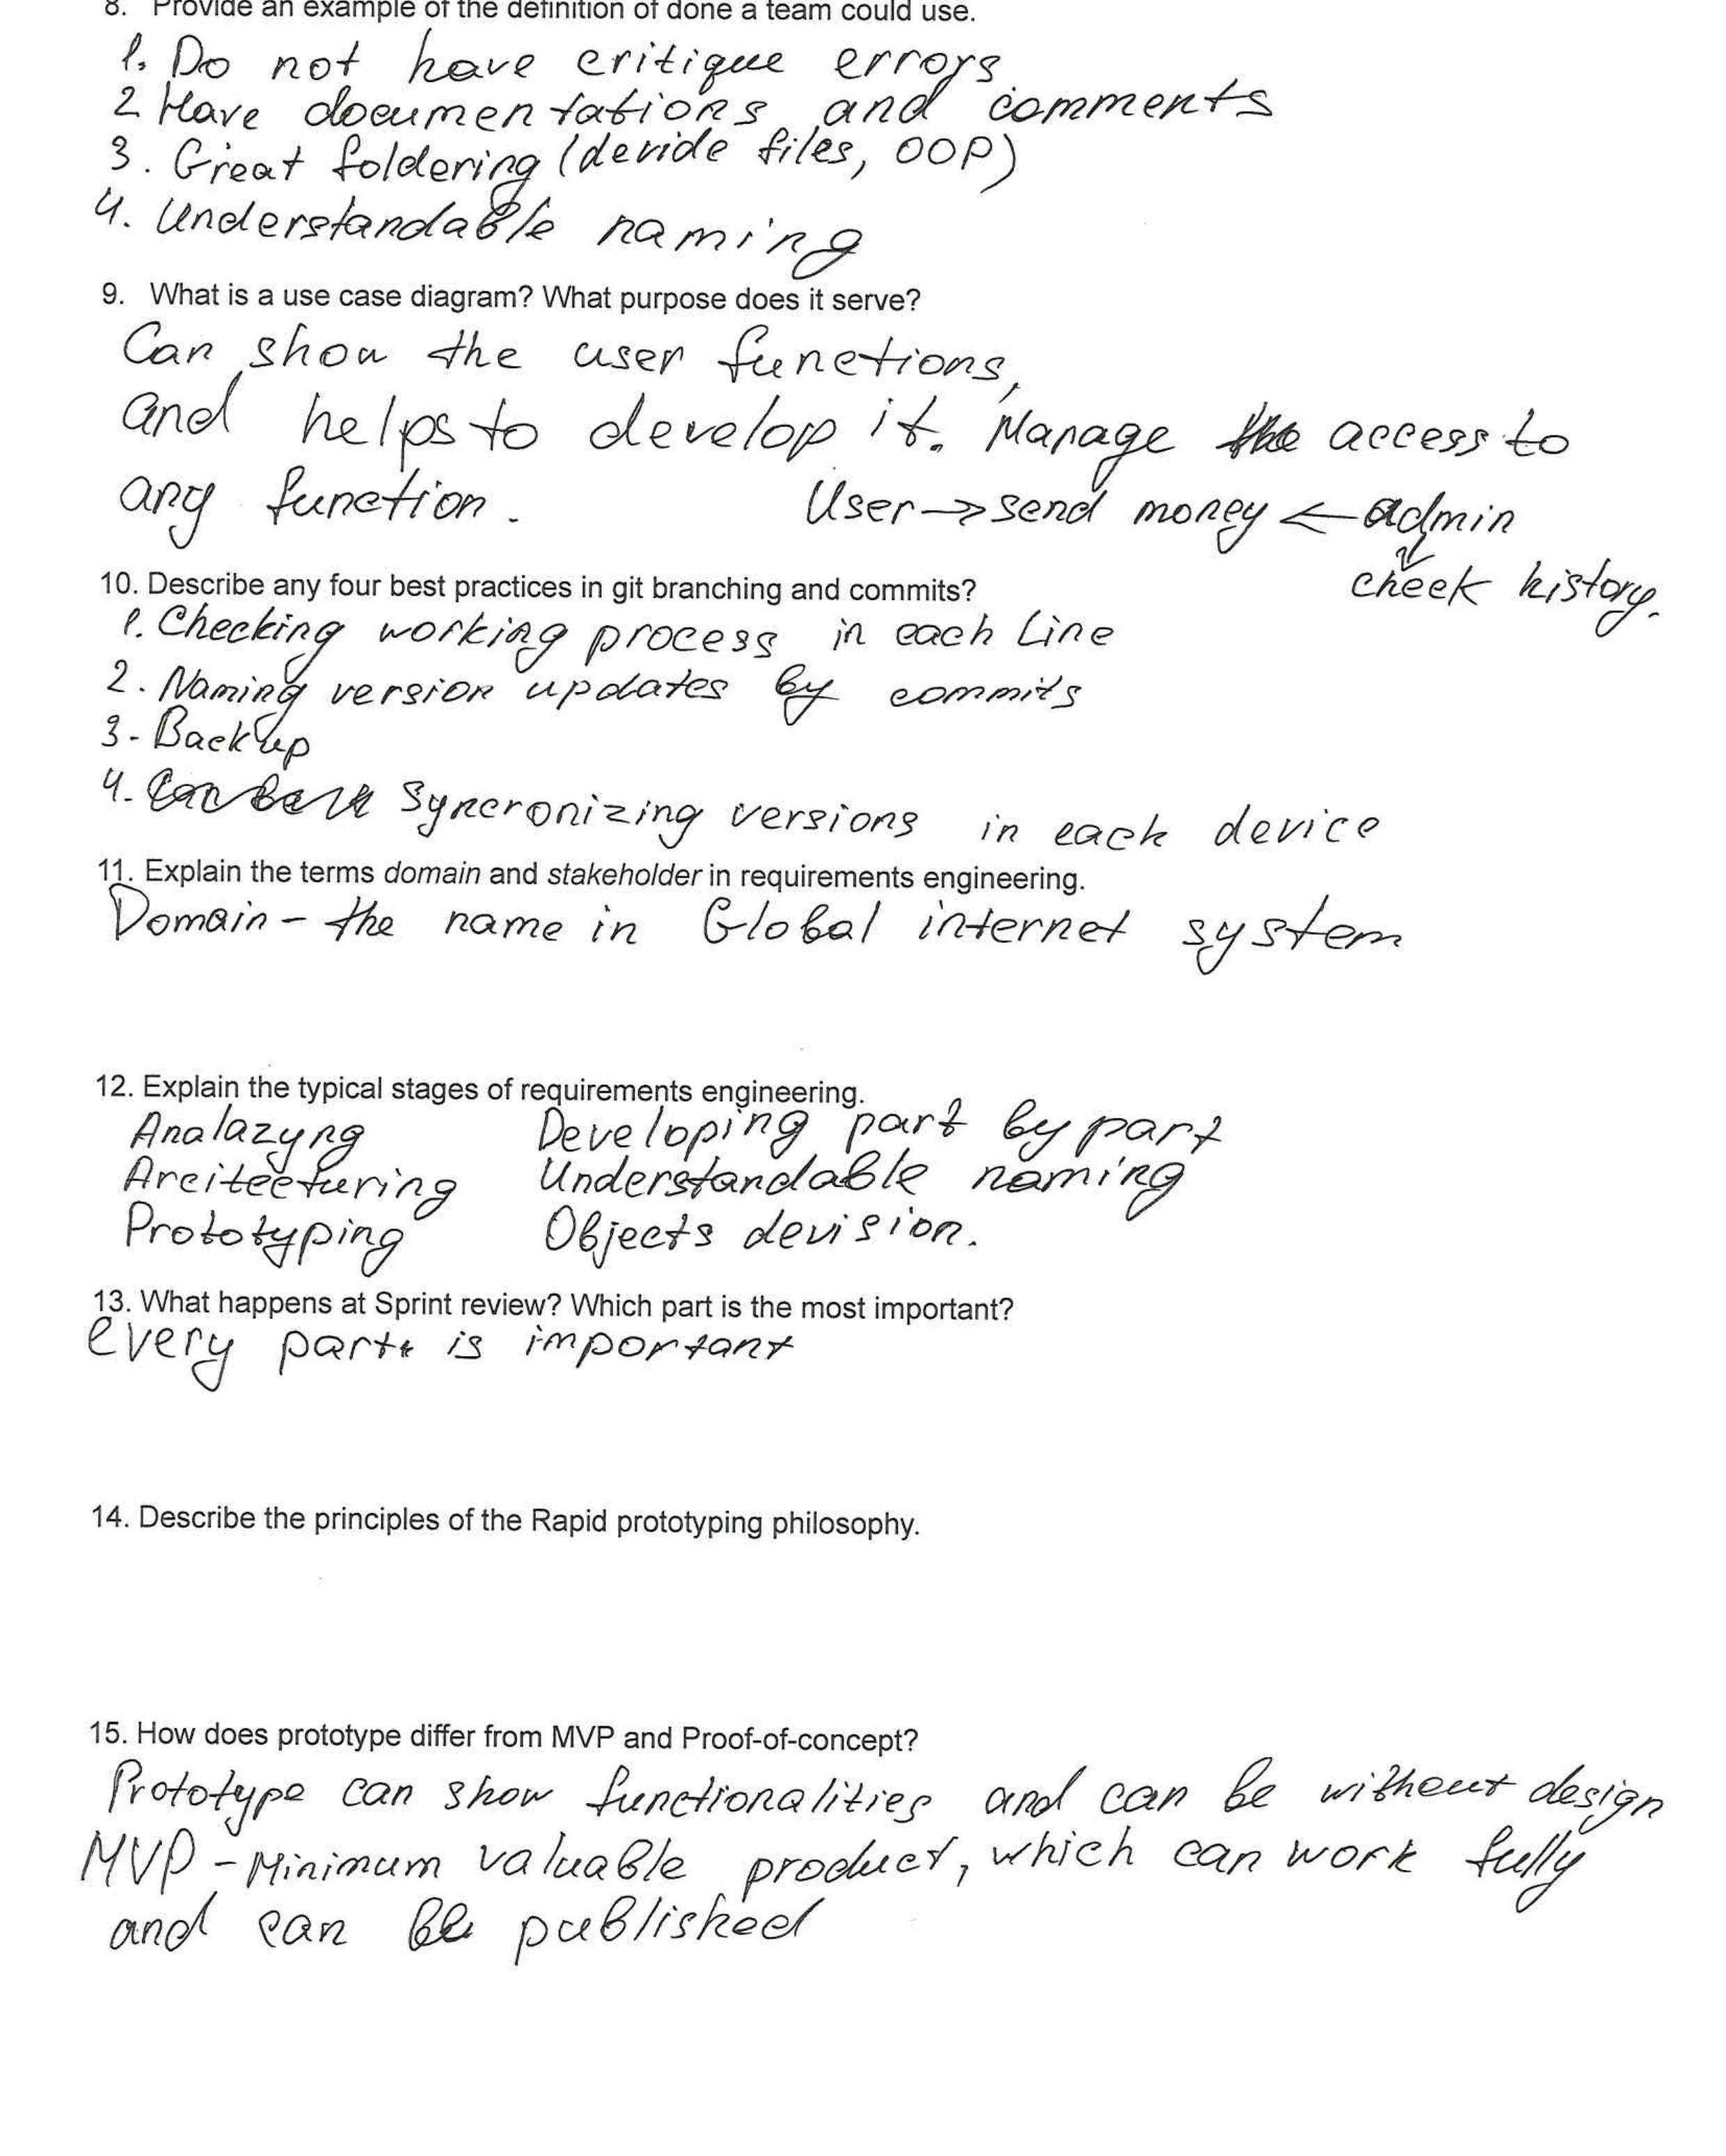 8. Provide an example of the definition of done a team could use.
1. Do not have critique errors
2 Have documentations and comments
3. Great foldering (devide files, OOP)
4. Understandable naming
9. What is a use case diagram? What purpose does it serve?
Can show the user functions,
and helps to develop it. Manage the access to
any function. User → send money ← admin
check history.
10. Describe any four best practices in git branching and commits?
1. Checking working process in each Line
2. Naming version updates by commits
3- Backup
4. Syncronizing versions in each device
11. Explain the terms domain and stakeholder in requirements engineering.
Domain - the name in Global internet system
12. Explain the typical stages of requirements engineering.
Analazyng Developing part by part
Arcitecturing Understandable naming
Prototyping Objects devision.
13. What happens at Sprint review? Which part is the most important?
every part is important
14. Describe the principles of the Rapid prototyping philosophy.
15. How does prototype differ from MVP and Proof-of-concept?
Prototype can show functionalities and can be without design
MVP - Minimum valuable product, which can work fully
and can be published